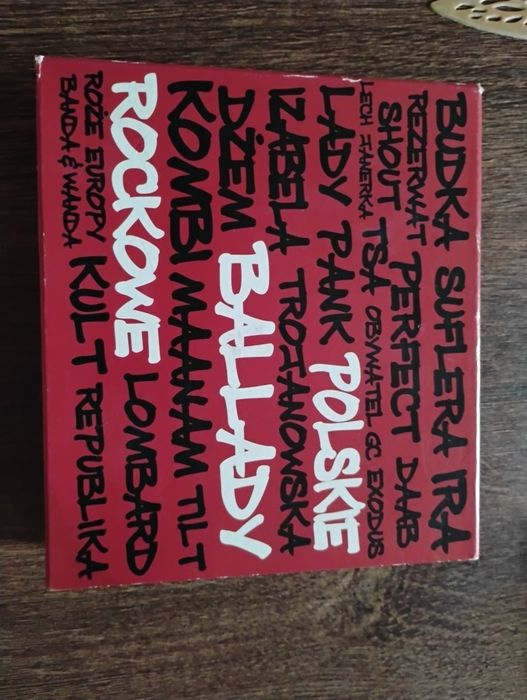 BUDKA SUFLERA IRA
REZERWAT PERFECT DAAB
SHOUT TSA OBYWATEL GC EXODUS
LECH JANERKA
LADY PANK POLSKIE
IZABELA TROJANOWSKA
DŻEM BALLADY
KOMBI MAANAM TILT
ROCKOWE LOMBARD
RÓŻE EUROPY KULT REPUBLIKA
BANDA & WANDA